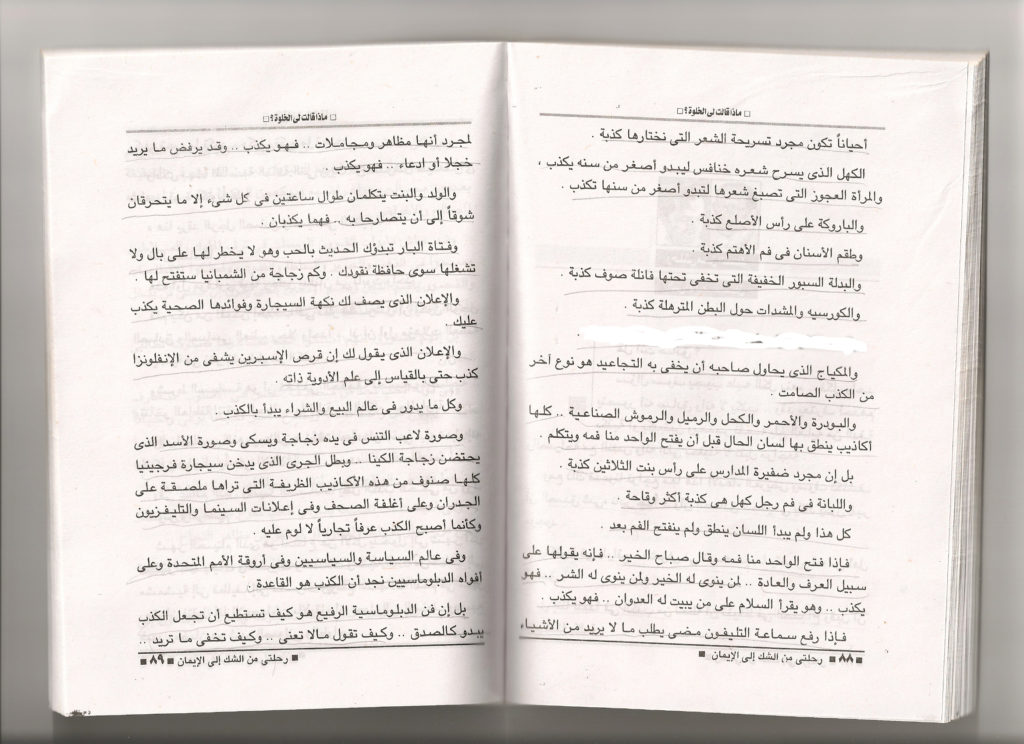 □ ماذا قالت لى الخلوة ؟ □
أحياناً تكون مجرد تسريحة الشعر التى نختارها كذبة .
الكهل الذى يسرح شعره خنافس ليبدو أصغر من سنه يكذب ،
والمرأة العجوز التى تصبغ شعرها لتبدو أصغر من سنها تكذب .
والباروكة على رأس الأصلع كذبة .
وطقم الأسنان فى فم الأهتم كذبة .
والبدلة السبور الخفيفة التى تخفى تحتها فانلة صوف كذبة .
والكورسيه والمشدات حول البطن المترهلة كذبة .
والمكياج الذى يحاول صاحبه أن يخفى به التجاعيد هو نوع آخر
من الكذب الصامت .
والبودرة والأحمر والكحل والرميل والرموش الصناعية .. كلها
أكاذيب ينطق بها لسان الحال قبل أن يفتح الواحد منا فمه ويتكلم .
بل إن مجرد ضفيرة المدارس على رأس بنت الثلاثين كذبة .
واللبانة فى فم رجل كهل هى كذبة أكثر وقاحة .
كل هذا ولم يبدأ اللسان ينطق ولم ينفتح الفم بعد .
فإذا فتح الواحد منا فمه وقال صباح الخير .. فإنه يقولها على
سبيل العرف والعادة .. لمن ينوى له الخير ولمن ينوى له الشر .. فهو
يكذب .. وهو يقرأ السلام على من يبيت له العدوان .. فهو يكذب .
فإذا رفع سماعة التليفون مضى يطلب ما لا يريد من الأشياء
■ ٨٨ ■ رحلتى من الشك إلى الإيمان ■
□ ماذا قالت لى الخلوة ؟ □
لمجرد أنها مظاهر ومجاملات .. فهو يكذب .. وقد يرفض ما يريد
خجلا أو ادعاء .. فهو يكذب .
والولد والبنت يتكلمان طوال ساعتين فى كل شىء إلا ما يتحرقان
شوقاً إلى أن يتصارحا به .. فهما يكذبان .
وفتاة البار تبدؤك الحديث بالحب وهو لا يخطر لها على بال ولا
تشغلها سوى حافظة نقودك . وكم زجاجة من الشمبانيا ستفتح لها .
والإعلان الذى يصف لك نكهة السيجارة وفوائدها الصحية يكذب
عليك .
والإعلان الذى يقول لك إن قرص الإسبرين يشفى من الإنفلونزا
كذب حتى بالقياس إلى علم الأدوية ذاته .
وكل ما يدور فى عالم البيع والشراء يبدأ بالكذب .
وصورة لاعب التنس فى يده زجاجة ويسكى وصورة الأسد الذى
يحتضن زجاجة الكينا .. وبطل الجرى الذى يدخن سيجارة فرجينيا
كلها صنوف من هذه الأكاذيب الظريفة التى تراها ملصقة على
الجدران وعلى أغلفة الصحف وفى إعلانات السينما والتليفزيون
وكأنما أصبح الكذب عرفاً تجارياً لا لوم عليه .
وفى عالم السياسة والسياسيين وفى أروقة الأمم المتحدة وعلى
أفواه الدبلوماسيين نجد أن الكذب هو القاعدة .
بل إن فن الدبلوماسية الرفيع هو كيف تستطيع أن تجعل الكذب
يبدو كالصدق .. وكيف تقول مالا تعنى .. وكيف تخفى ما تريد ..
■ رحلتى من الشك إلى الإيمان ■ ٨٩ ■